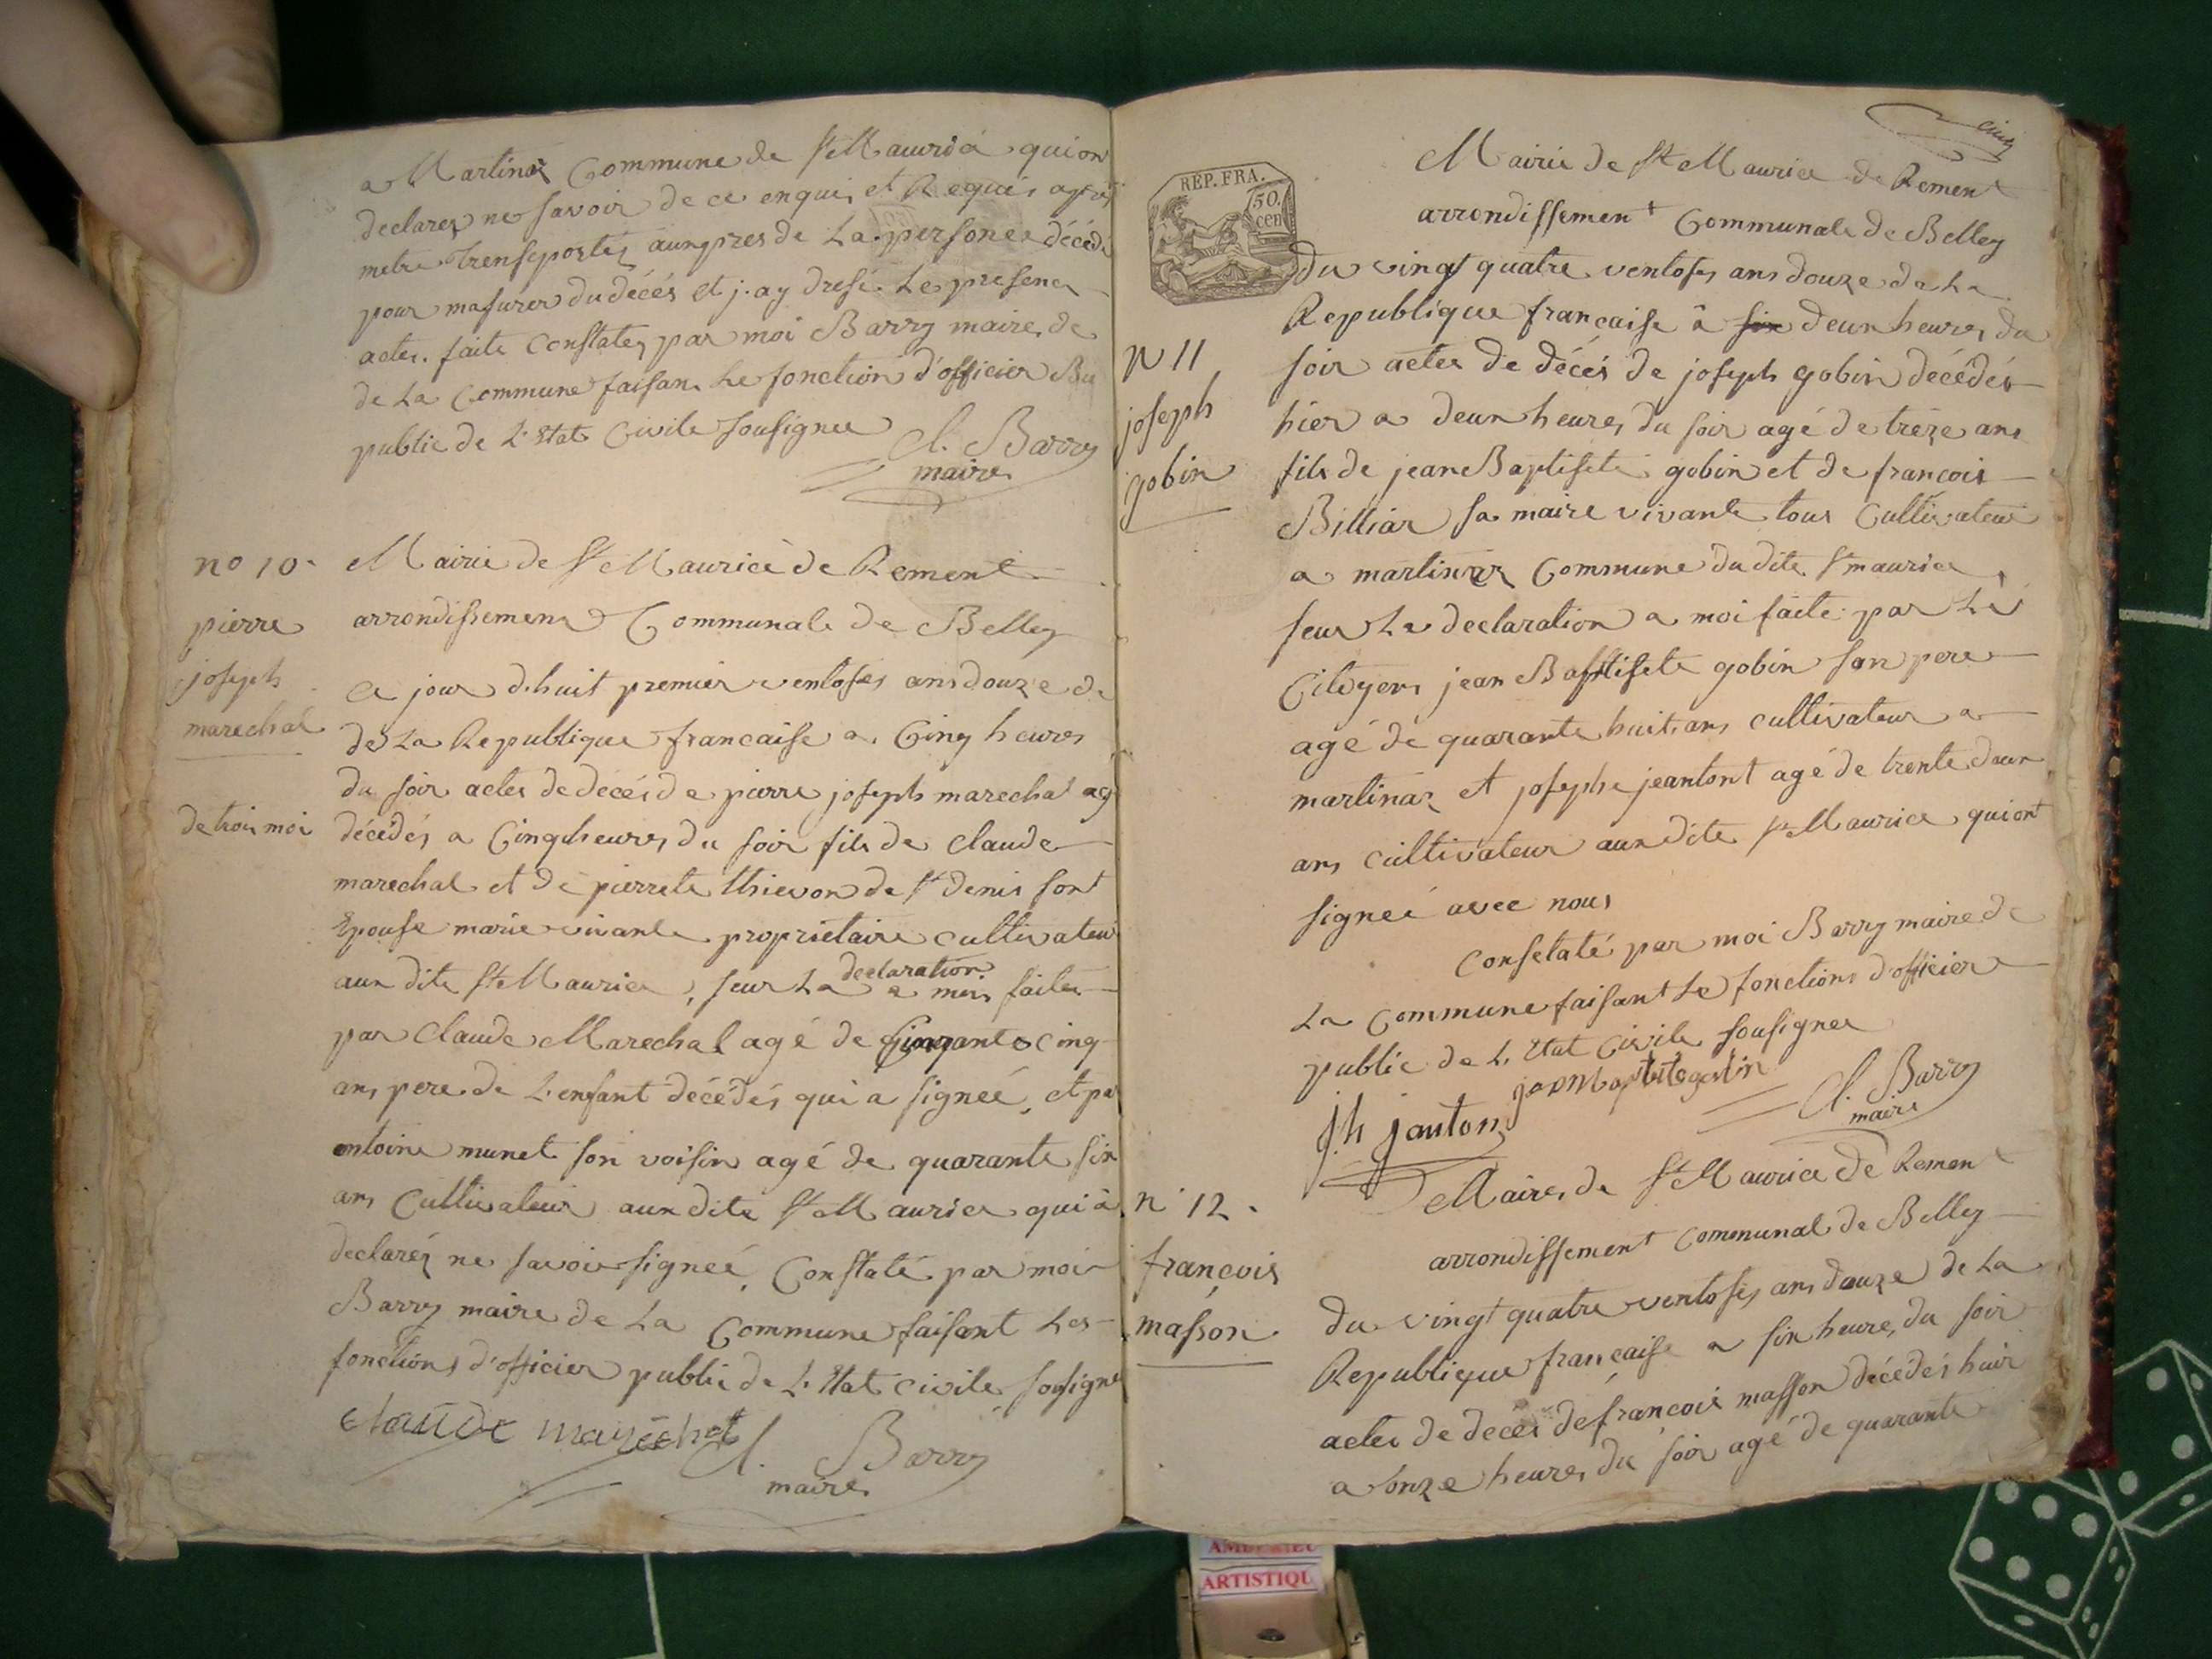 a Martinaz Commune de St Maurice qui on
declarez ne savoir de ce enquis et Requis après
metre trensportez aunpres de La personne décédé
pour masurer du décés et j.ay dresé Le presene
actes. faite Constatez par moi Barry maire de
de La Commune faisan Le fonction d'officier
public de L'Etat Civile sousignee
Cl. Barry
maire
no 10.
pierre
joseph
marechal
de trois moi
Mairie de St Maurice de Remene
arrondissemene Communale de Belley
Ce jour d.huit premier ventoses ans douze de
de La Republique francaise a. Cinq heures
du soir actes de décés de pierre joseph marechal ag
décédés a Cinq heures du soir fils de Claude
marechal et de pierrete thievon de St Denis sont
Epouse marie vivante propriétaire cultivateur
aux dite St Maurice, seur La declaration a moi faites
par Claude Marechal agé de Cinquante cinq
ans pere de L'enfant décédés qui a signeé, et par
antoine munet son voisin agé de quarante six
ans Cultivateur aux dite St Maurice qui à
declaréz ne savoir signeé, Constaté par moi
Barry maire de La Commune faisant Les
fonctions d'officier public de L. Etat civile, sousigne
claude marechal
Cl. Barry
maire
REP. FRA.
50.
cen
Mairie de St Maurice de Remene
arrondissement Communale de Belley
N 11
joseph
gobin
du vingt quatre ventoses ans douze de La
Republique francaise â six deux heures du
soir actes de décés de joseph gobin décédés
hier a deux heures du soir agé de trèze ans
fils de jean Baptisete gobin et de francois
Billiar sa maire vivante tous Cultivateur
a martinaz Commune du dite St maurice
seur La declaration a moi faite par Les
Citoyens jean Baptisete gobin son pere
agé de quarante huit ans cultivateur a
martinaz et josephe jeantont agé de trente deux
ans cultivateur aux dite St Maurice qui ont
signeé avec nous
Consetaté par moi Barry maire de
La Commune faisant Le fonctions d'officier
public de L. Etat Civile sousignee
jh janton
Cl. Barry
maire
n° 12.
françois
masson
Maire, de St Maurice de Remene
arrondissement Communal de Belley
du vingt quatre ventoses ans douze de La
Republique française a six heure, du soir
actes de deces de francois masson décédés huir
a onze heures du soir agé de quarante
ARTISTIQU